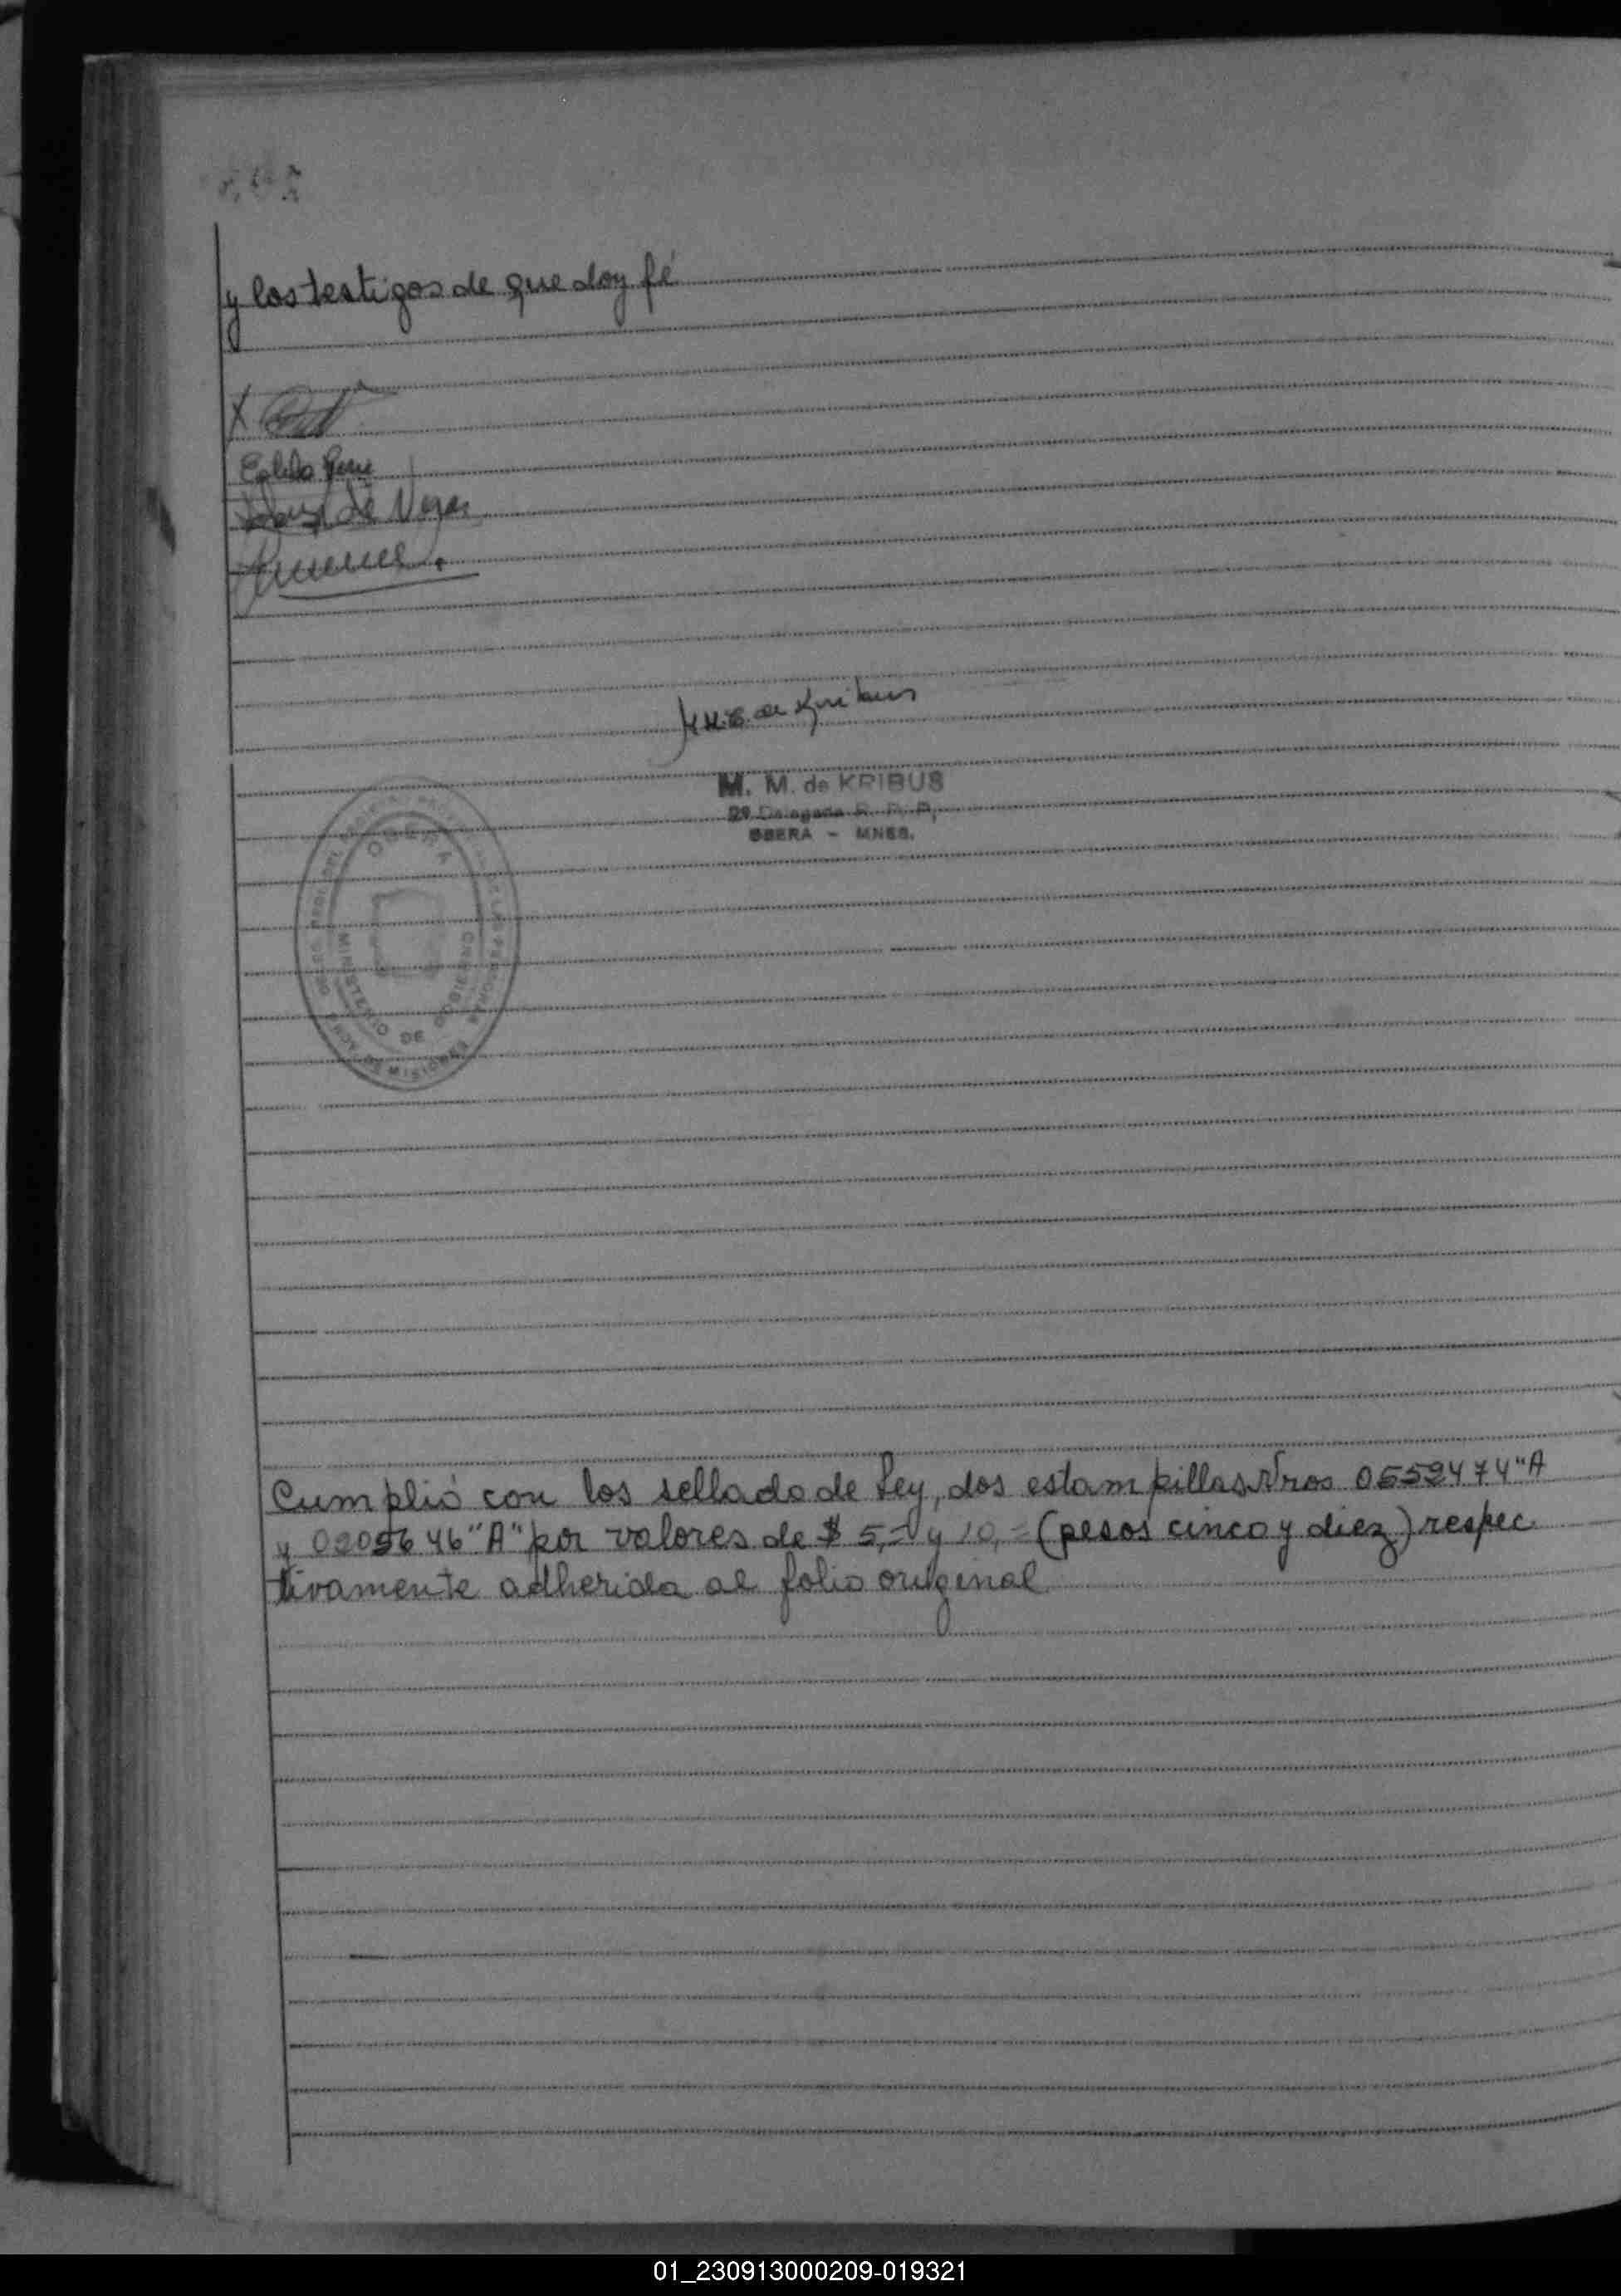 y los testigos de que doy fé
X
de
M. M. de Kribus
M. M. de KRIBUS
Delegada R. P. P.
OBERA - MNES.
OBERA
MINISTERIO DE GOBIERNO
DE MISIONES
Cumplió con los sellado de Ley, dos estampillas Nros 0552474 "A
y 0205646 "A" por valores de $ 5,= y 10,= (pesos cinco y diez) respec
tivamente adherida al folio original
01_230913000209-019321